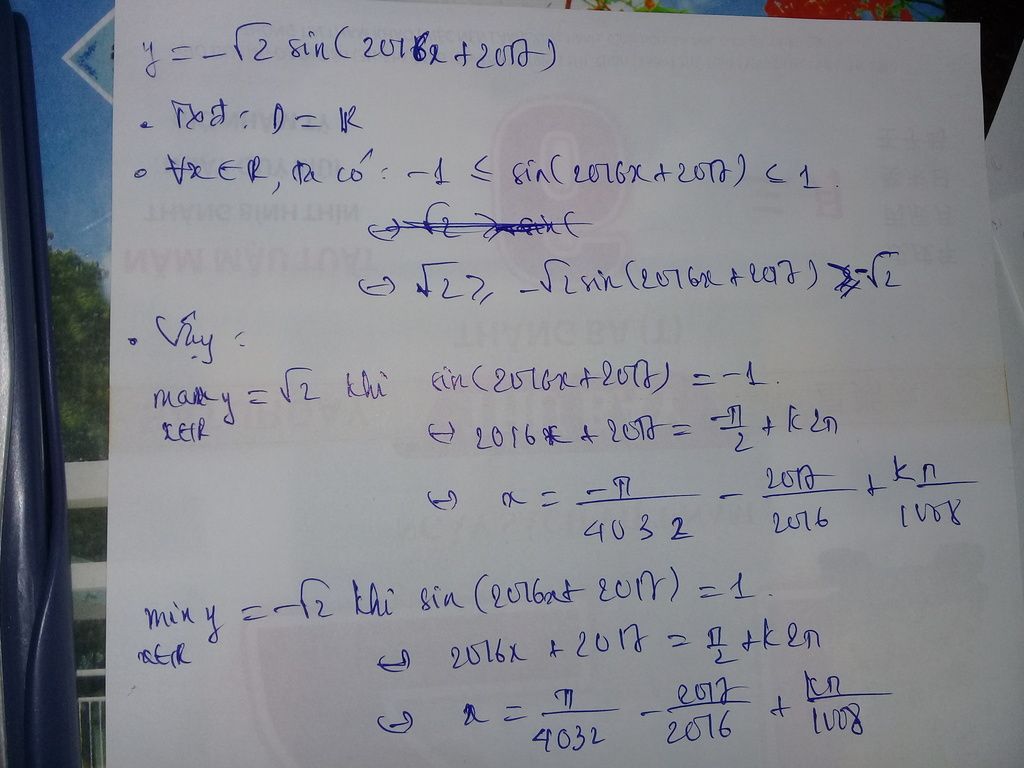 y = -√2 sin(2016x + 2017)
• Txđ: D = R
• ∀x ∈ R, ta có: -1 ≤ sin(2016x + 2017) ≤ 1.
⇔ √2 ≥ -√2 sin(2016x + 2017) ≥ -√2
• Vậy:
max y = √2 khi sin(2016x + 2017) = -1.
x∈R
⇔ 2016x + 2017 = -π/2 + k2π
⇔ x = -π/4032 - 2017/2016 + kπ/1008
min y = -√2 khi sin(2016x + 2017) = 1.
x∈R
⇔ 2016x + 2017 = π/2 + k2π
⇔ x = π/4032 - 2017/2016 + kπ/1008